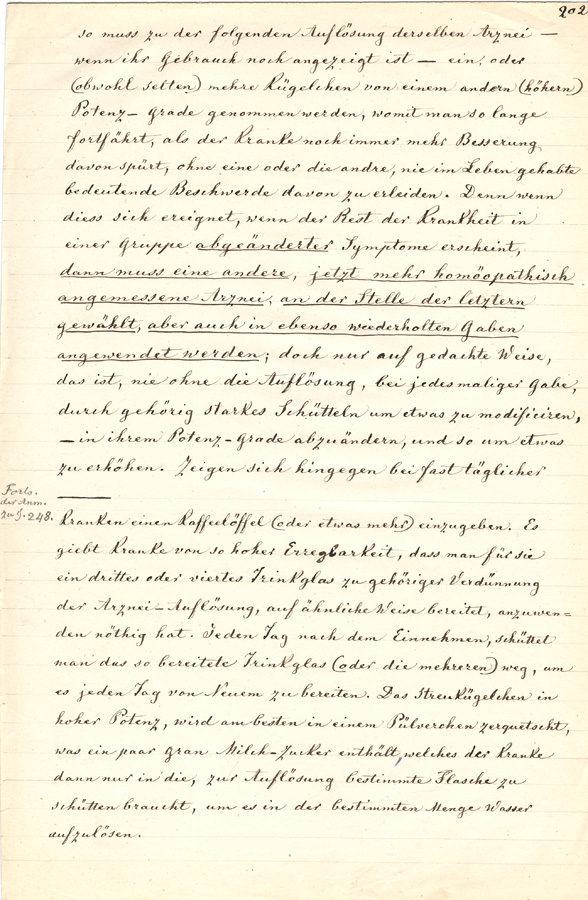 202
so muss zu der folgenden Auflösung derselben Arznei —
wenn ihr Gebrauch noch angezeigt ist — ein, oder
(obwohl selten) mehre Kügelchen von einem andern (höhern)
Potenz-Grade genommen werden, womit man so lange
fortfährt, als der Kranke noch immer mehr Besserung
davon spürt, ohne eine oder die andre, nie im Leben gehabte
bedeutende Beschwerde davon zu erleiden. Denn wenn
diess sich ereignet, wenn der Rest der Krankheit in
einer Gruppe abgeänderter Symptome erscheint,
dann muss eine andere, jetzt mehr homöopathisch
angemessene Arznei, an der Stelle der letztern
gewählt, aber auch in ebenso wiederholten Gaben
angewendet werden; doch nur auf gedachte Weise,
das ist, nie ohne die Auflösung, bei jedesmaliger Gabe,
durch gehörig starkes Schütteln um etwas zu modificiren,
— in ihrem Potenz-Grade abzuändern, und so um etwas
zu erhöhen. Zeigen sich hingegen bei fast täglicher
Forts.
der Anm.
zu §. 248.
Kranken einen Kaffeelöffel (oder etwas mehr) einzugeben. Es
giebt Kranke von so hoher Erregbarkeit, dass man für sie
ein drittes oder viertes Trinkglas zu gehöriger Verdünnung
der Arznei-Auflösung, auf ähnliche Weise bereitet, anzuwen-
den nöthig hat. Jeden Tag nach dem Einnehmen, schüttet
man das so bereitete Trinkglas (oder die mehreren) weg, um
es jeden Tag von Neuem zu bereiten. Das Streukügelchen in
hoher Potenz, wird am besten in einem Pülverchen zerquetscht,
was ein paar Gran Milch-Zucker enthält, welches der Kranke
dann nur in die, zur Auflösung bestimmte Flasche zu
schütten braucht, um es in der bestimmten Menge Wasser
aufzulösen.